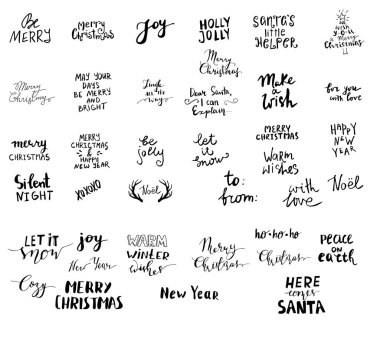 Be
MERRY
Merry
Christmas
Joy
HOLLY
JOLLY
SANTA'S
little
HELPER
We
wish
YOU
a Merry
Christmas
Merry
Christmas
MAY YOUR
DAYS
BE MERRY
AND
BRIGHT
Jingle
all the
way
Merry
Christmas
Dear Santa,
I can
Explain
Make
a
Wish
for you
with love
merry
CHRISTMAS
MERRY
CHRISTMAS
&
HAPPY
NEW YEAR
be
jolly
let
it
snow
MERRY
CHRISTMAS
Warm
wishes
HAPPY
NEW
YEAR
Silent
NIGHT
XOXOXO
Noël
to:
from:
with
love
Noël
LET IT
snow
joy
New Year
WARM
WINTER
wishes
Merry
Christmas
ho-ho-ho
Christmas
PEACE
on
earth
Cozy
MERRY
CHRISTMAS
New Year
HERE
comes
SANTA